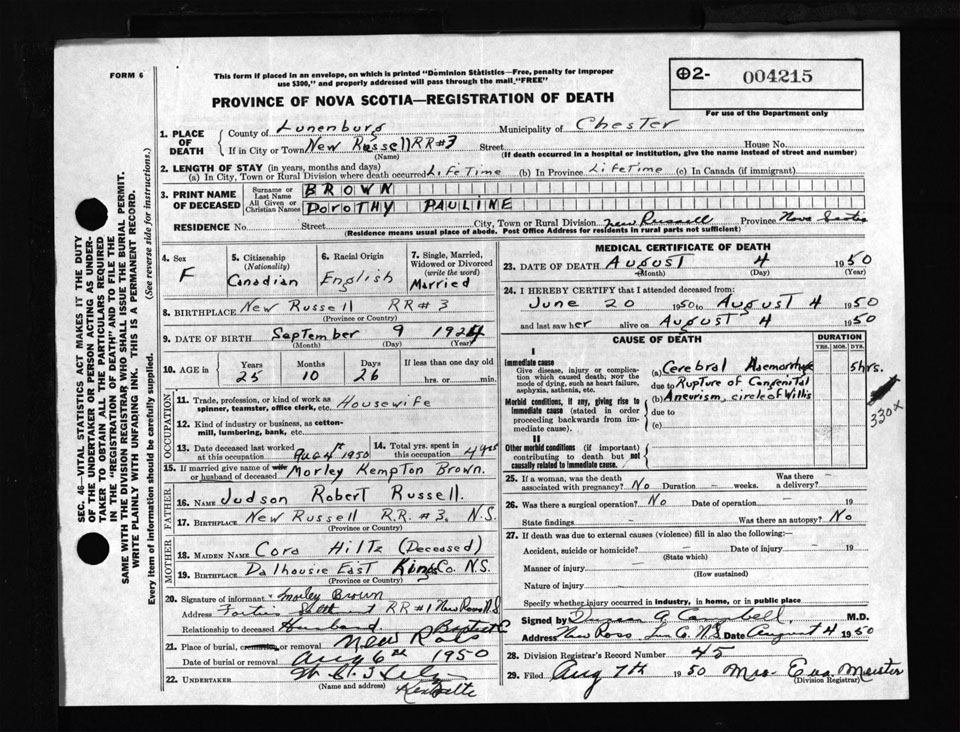 FORM 6
This form if placed in an envelope, on which is printed "Dominion Statistics—Free, penalty for improper
use $300," and properly addressed will pass through the mail "FREE"
⊕2- 004215
PROVINCE OF NOVA SCOTIA—REGISTRATION OF DEATH
For use of the Department only
1. PLACE OF DEATH { County of Lunenburg Municipality of Chester
If in City or Town New Russell RR#3 Street House No.
(Name) (If death occurred in a hospital or institution, give the name instead of street and number)
2. LENGTH OF STAY (in years, months and days)
(a) In City, Town or Rural Division where death occurred LifeTime (b) In Province LifeTime (c) In Canada (if immigrant)
3. PRINT NAME OF DECEASED { Surname or Last Name BROWN
All Given or Christian Names DOROTHY PAULINE
RESIDENCE No. Street City, Town or Rural Division New Russell Province Nova Scotia
(Residence means usual place of abode. Post Office Address for residents in rural parts not sufficient)
4. Sex F
5. Citizenship (Nationality) Canadian
6. Racial Origin English
7. Single, Married, Widowed or Divorced (write the word) Married
8. BIRTHPLACE New Russell RR#3
(Province or Country)
9. DATE OF BIRTH September 9 1924
(Month) (Day) (Year)
10. AGE in { Years 25 Months 10 Days 26 If less than one day old
hrs. or min.
OCCUPATION
11. Trade, profession, or kind of work as spinner, teamster, office clerk, etc. Housewife
12. Kind of industry or business, as cotton-mill, lumbering, bank, etc.
13. Date deceased last worked at this occupation 1950
14. Total yrs. spent in this occupation 4 yrs
15. If married give name of wife or husband of deceased Morley Kempton Brown.
FATHER
16. Name Judson Robert Russell.
17. Birthplace New Russell R.R. #3. N.S.
(Province or Country)
MOTHER
18. Maiden Name Cora Hiltz (Deceased)
19. Birthplace Dalhousie East Kings Co. N.S.
(Province or Country)
20. Signature of informant Morley Brown
Address RR #1 New Ross N.S
Relationship to deceased Husband
21. Place of burial, cremation, or removal New Ross Baptist
Date of burial or removal Aug 6th 1950
22. UNDERTAKER
(Name and address)
MEDICAL CERTIFICATE OF DEATH
23. DATE OF DEATH August 4 1950
(Month) (Day) (Year)
24. I HEREBY CERTIFY that I attended deceased from:
June 20 1950 to August 4 1950
and last saw her alive on August 4 1950
CAUSE OF DEATH DURATION
YRS. MOS. DYS.
I
Immediate cause
Give disease, injury or complication which caused death; not the mode of dying, such as heart failure, asphyxia, asthenia, etc.
(a) Cerebral Haemorrhage 5hrs.
due to Rupture of Congenital
Morbid conditions, if any, giving rise to immediate cause (stated in order proceeding backwards from immediate cause).
(b) Aneurism, circle of Willis
due to
(c)
330x
II
Other morbid conditions (if important) contributing to death but not causally related to immediate cause.
25. If a woman, was the death associated with pregnancy? No Duration – weeks. Was there a delivery? –
26. Was there a surgical operation? No Date of operation – 19
State findings – Was there an autopsy? No
27. If death was due to external causes (violence) fill in also the following:—
Accident, suicide or homicide? – Date of injury – 19
(State which)
Manner of injury –
(How sustained)
Nature of injury –
Specify whether injury occurred in industry, in home, or in public place
Signed by Duncan G. Campbell M.D.
Address New Ross Lun Co. N.S. Date August 4 1950
28. Division Registrar's Record Number 45
29. Filed Aug 7th 1950 Mrs. Eva Meister
(Division Registrar)
SEC. 46—VITAL STATISTICS ACT MAKES IT THE DUTY
OF THE UNDERTAKER OR PERSON ACTING AS UNDER-
TAKER TO OBTAIN ALL THE PARTICULARS REQUIRED
IN THE "REGISTRATION OF DEATH" AND TO FILE THE
SAME WITH THE DIVISION REGISTRAR WHO SHALL ISSUE THE BURIAL PERMIT.
WRITE PLAINLY WITH UNFADING INK. THIS IS A PERMANENT RECORD.
Every item of information should be carefully supplied. (See reverse side for instructions.)